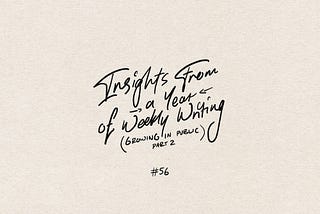 Insights From
→ a Year ←
of Weekly Writing
(GROWING IN PUBLIC)
PART 2
#56